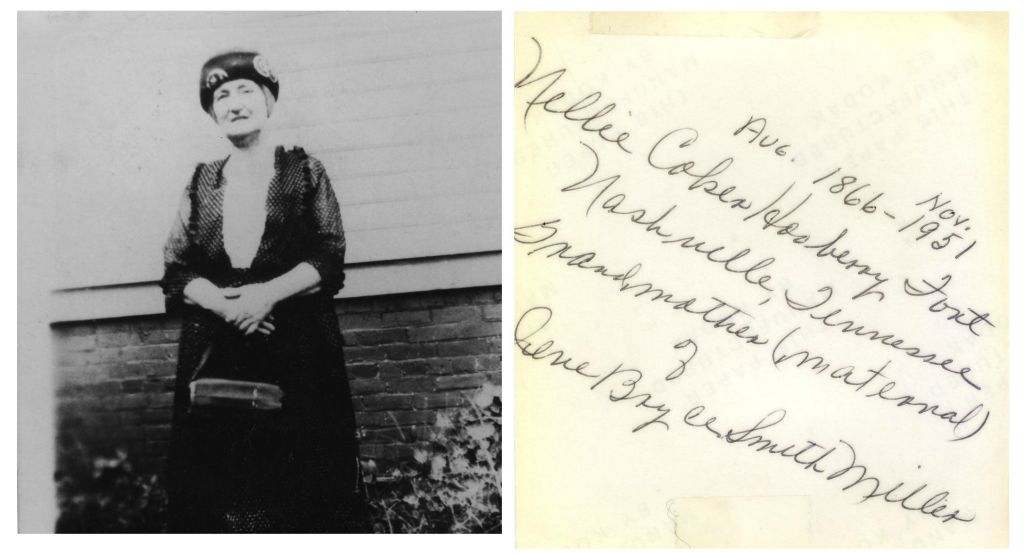 Nellie Coben Hosberry Font
Aug. 1866 - Nov. 1951
Nashville, Tennessee
Grandmother (maternal)
of
Irene Bryce Smith Miller